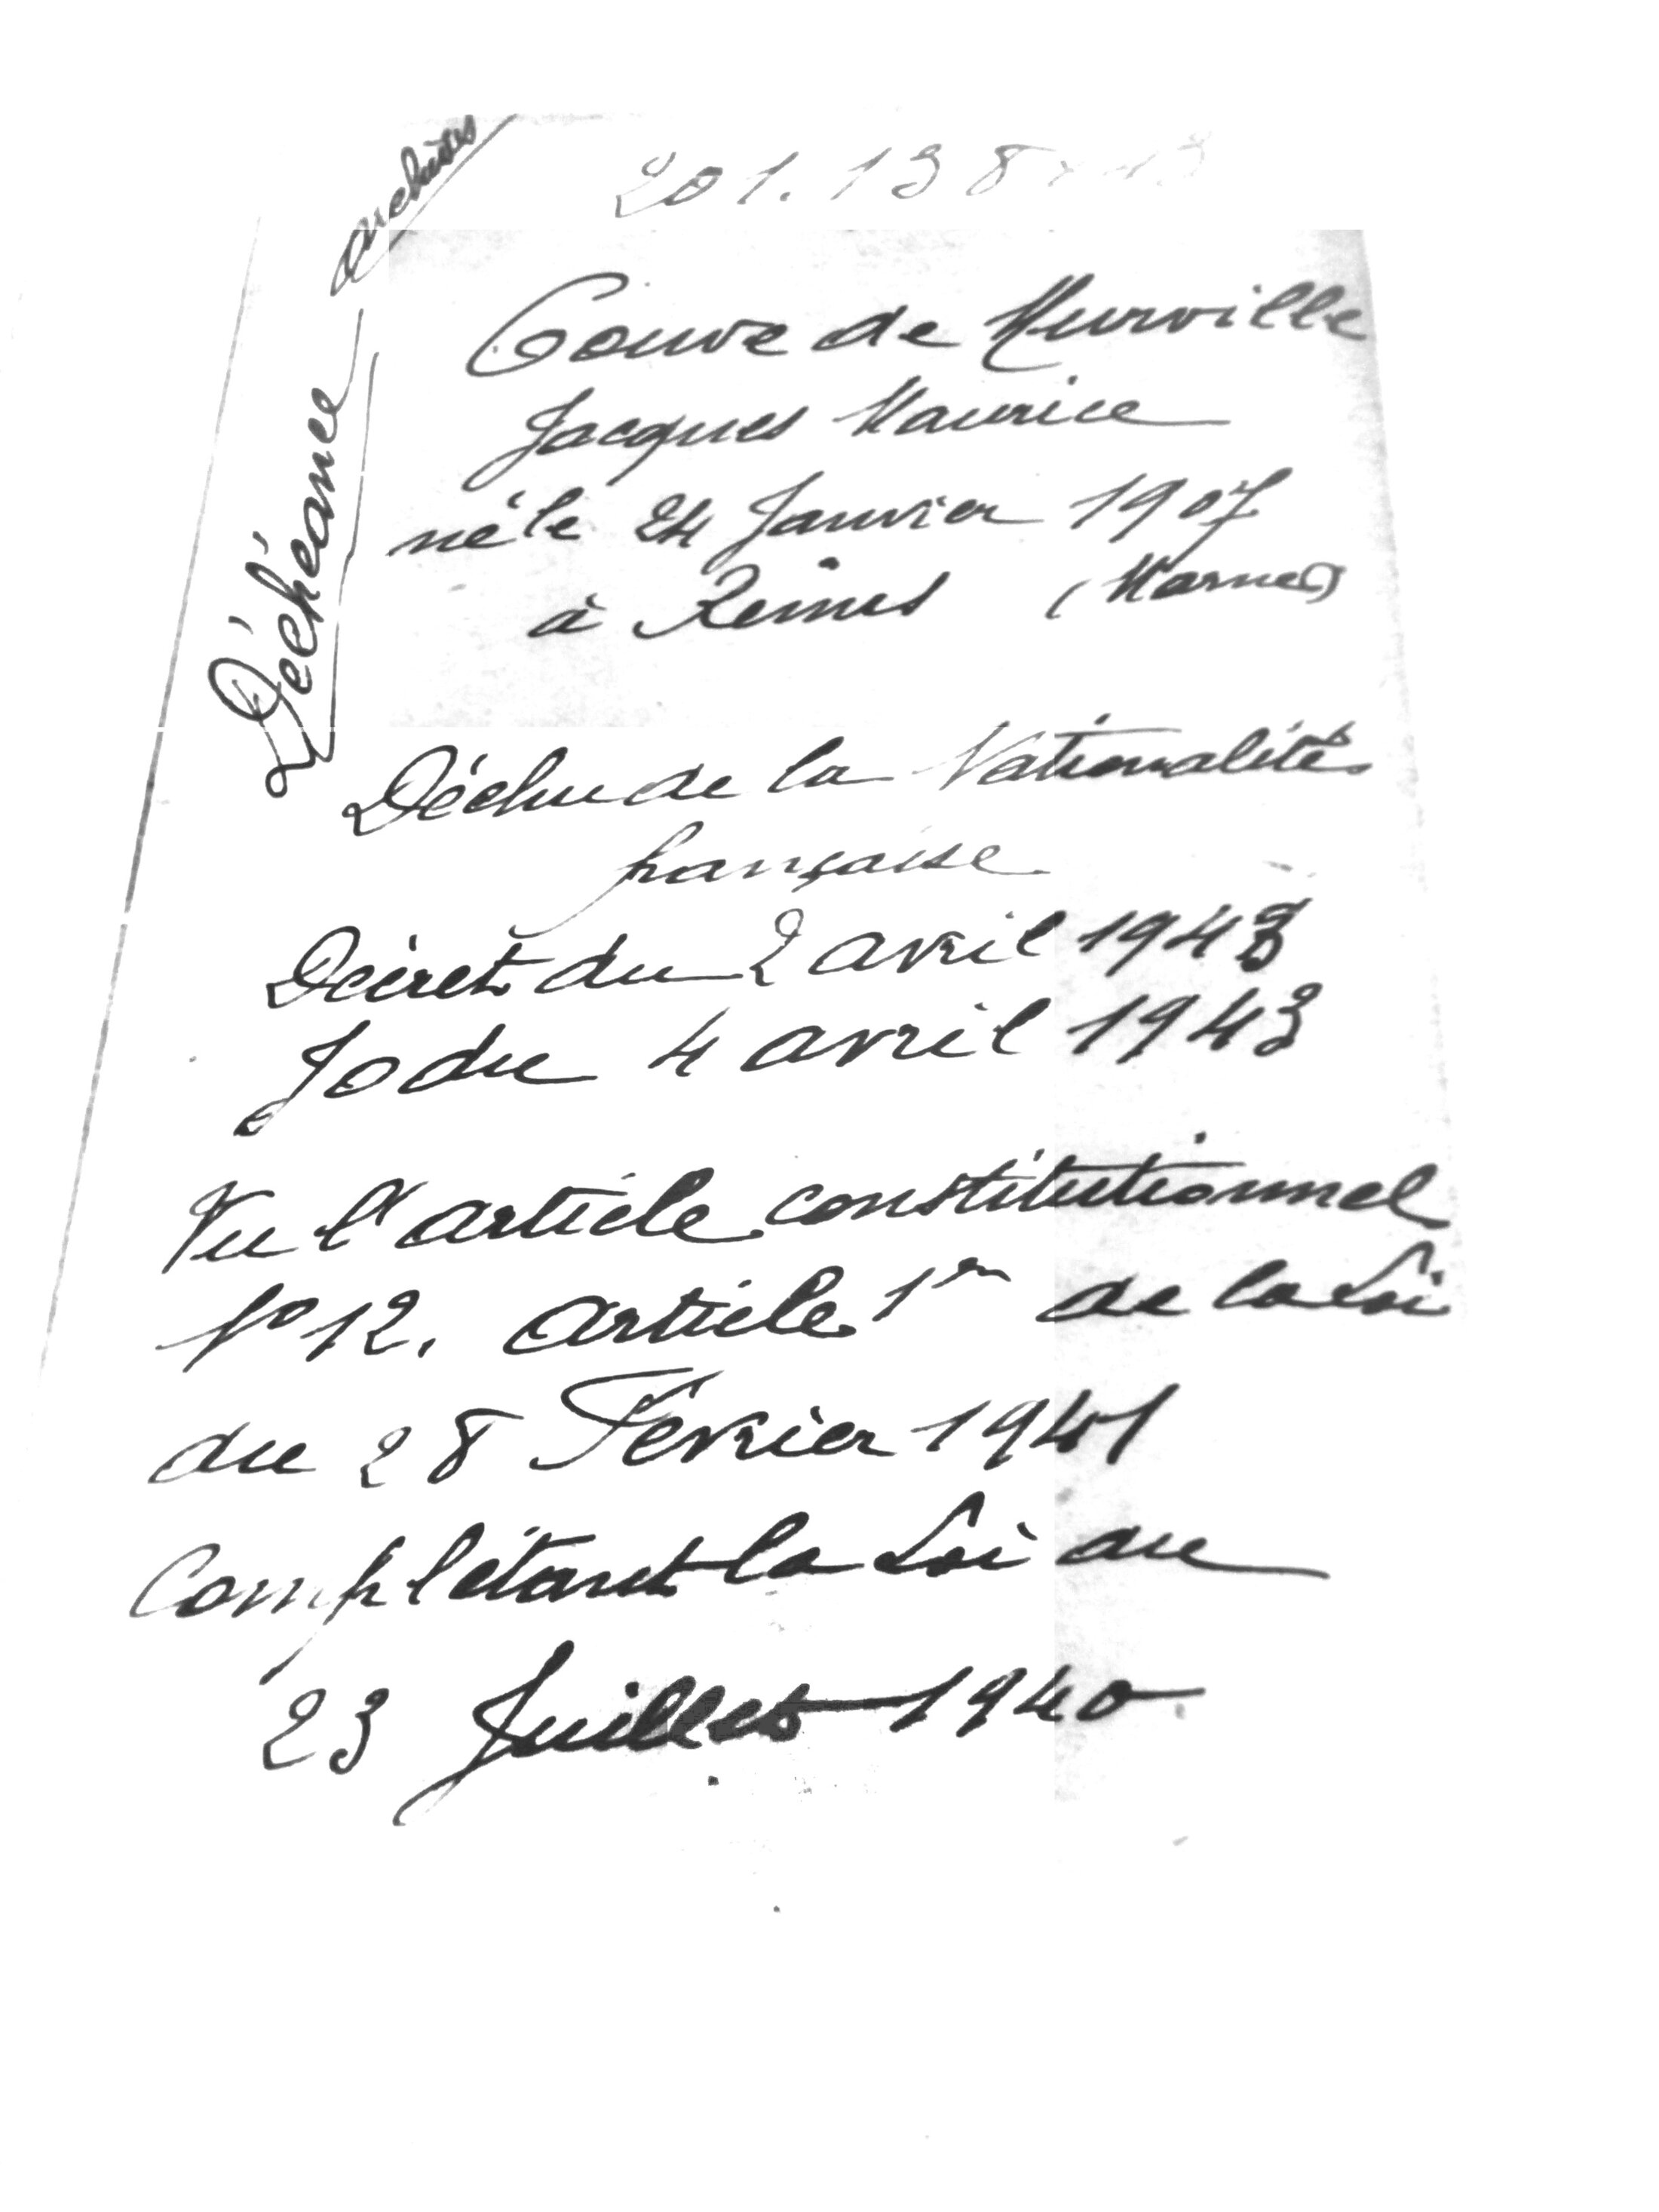 201.138
Déchéance
Couve de Murville
Jacques Maurice
né le 24 Janvier 1907
à Reims (Marne)
Déchu de la Nationalité
française
Décret du 2 avril 1943
Jo du 4 avril 1943
Vu l'article constitutionnel
No 12. article 1er de la Loi
du 28 Février 1941
Complétant la Loi du
23 Juillet 1940